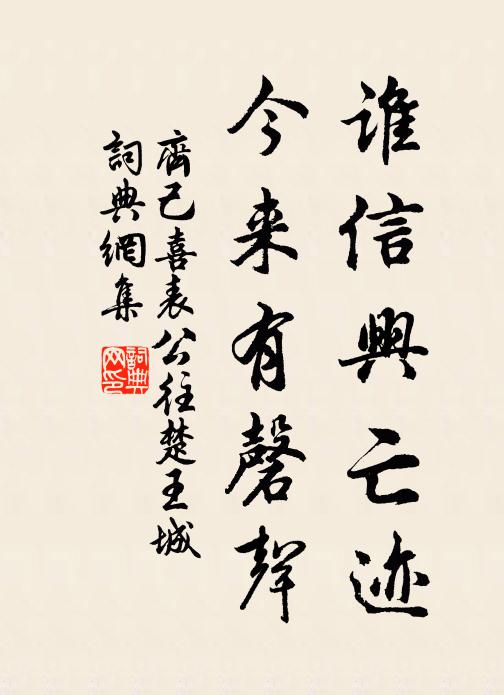 誰信興亡迹
今来有磬聲
齊己喜表公往楚王城
詞典網集
詞典网印